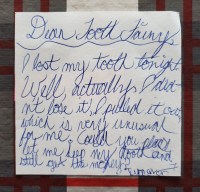 Dear Tooth Fairy,
I lost my tooth tonight
Well, actually, I did-
nt lose it, I pulled it out,
which is very unusual
for me. Could you please
let me keep my tooth and
still get the money?